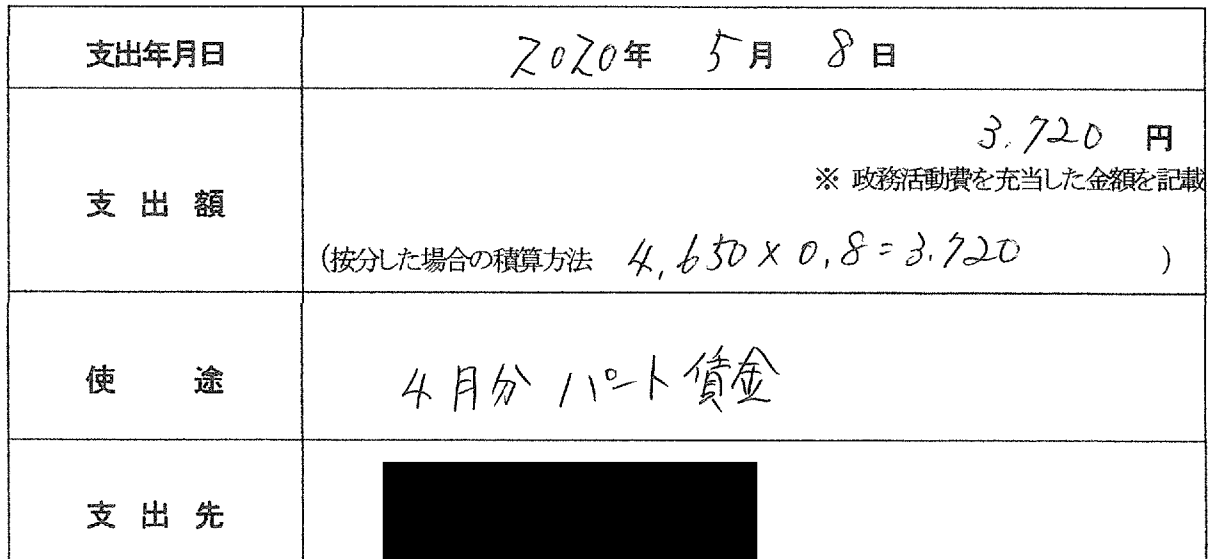 支出年月日 2020年 5月 8日
3.720 円
※ 政務活動費を充当した金額を記載
支出額
(按分した場合の積算方法 4,650×0.8=3.720 )
使途 4月分 パート賃金
支出先